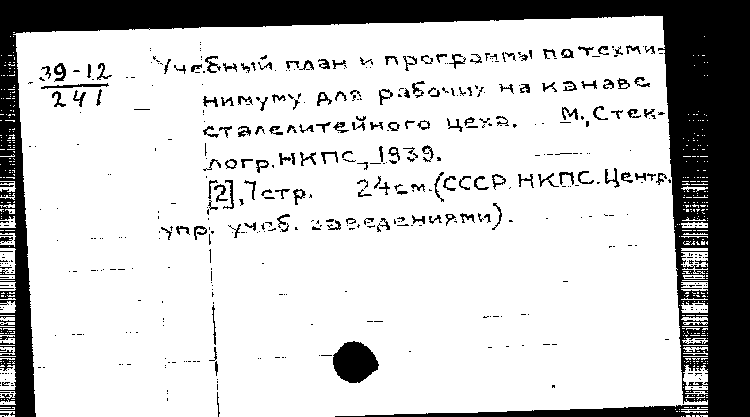 39-12
241
Учебный план и программы по техми=
нимуму для рабочих на канаве
сталелитейного цеха. М., Стек-
логр. НКПС, 1939.
[2], 7 стр. 24 см. (СССР. НКПС. Центр.
упр. учеб. заведениями).